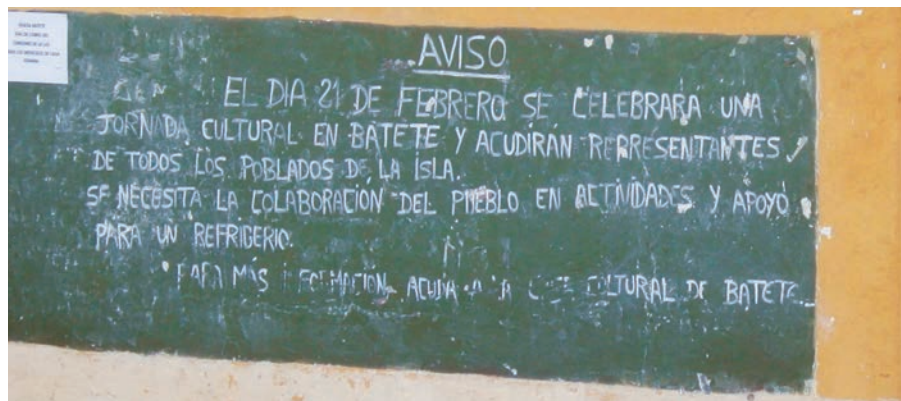 AVISO
EL DIA 21 DE FEBRERO SE CELEBRARÁ UNA
JORNADA CULTURAL EN BATETE Y ACUDIRÁN REPRESENTANTES
DE TODOS LOS POBLADOS DE LA ISLA.
SE NECESITA LA COLABORACIÓN DEL PUEBLO EN ACTIVIDADES Y APOYO
PARA UN REFRIGERIO.
PARA MÁS INFORMACIÓN ACUDIR A LA CULTURAL DE BATETE